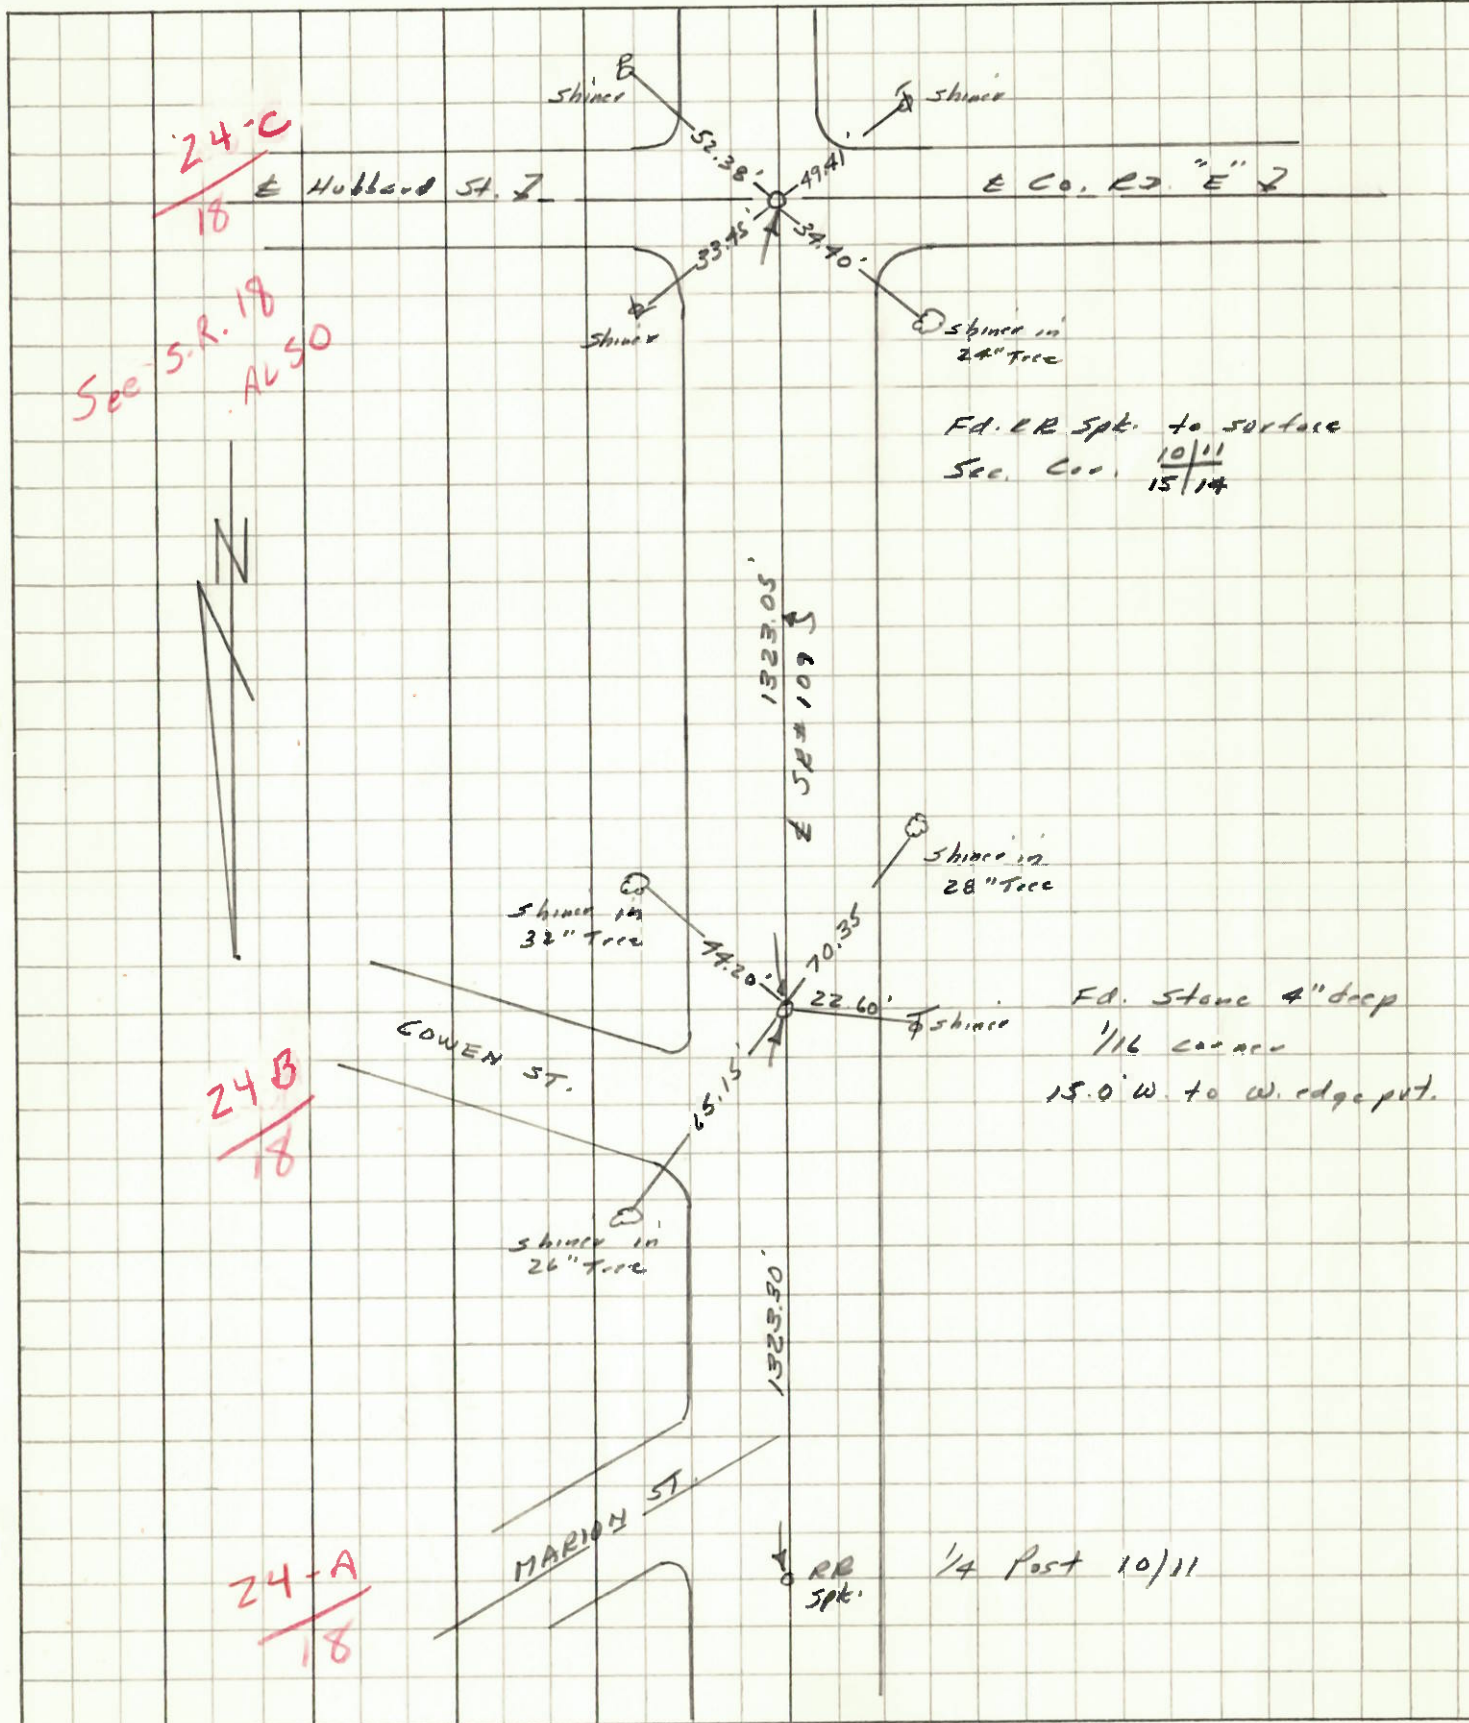 24-C
18
Shiner
shiner
52.38'
49.41'
℄ Hubbard St.
℄ Co. Rd. "E"
33.45'
34.40'
Shiner
shiner in
24" Tree
See S.R. 18
AL50
Fd. RR Spk. to surface
Sec. Cor. 10|11
15|14
N
1323.05'
℄ SR# 109
Shiner in
28" Tree
Shiner in
32" Tree
44.20'
70.35
22.60'
shiner
Fd. Stone 4" deep
1/16 corner
15.0' W. to W. edge pvt.
COWEN ST.
24B
18
65.15'
shiner in
26" Tree
1323.30'
MARION ST.
24-A
18
RR
Spk.
1/4 Post 10/11